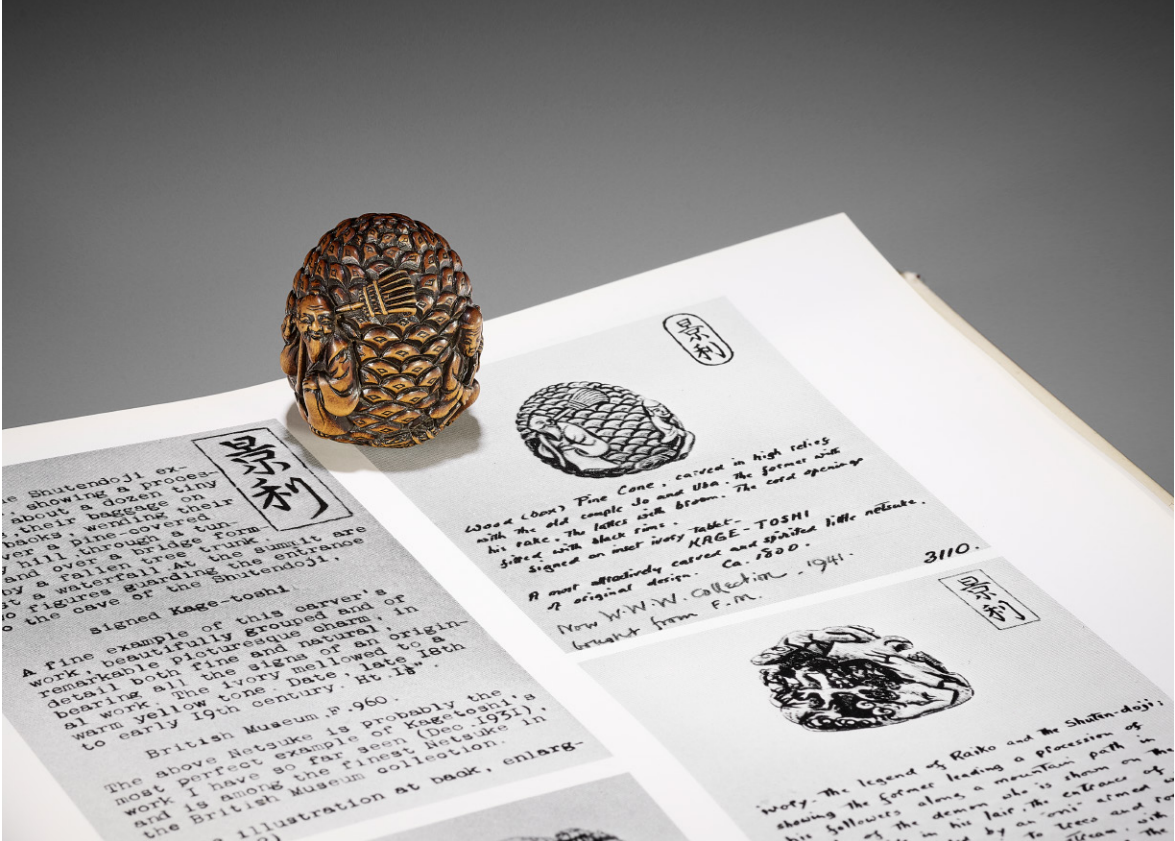 景利
he Shutendoji ex-
showing a proces-
about a dozen tiny
their baggage on
backs wending their
ver a pine-covered
y hill through a tun-
and over a bridge form-
by a fallen tree trunk.
t a waterfall. At the summit are
wo figures guarding the entrance
o the cave of the Shutendoji.
signed Kage-toshi.
A fine example of this carver's
work, beautifully grouped and of
remarkable picturesque charm, in
detail both fine and natural and
bearing all the signs of an origin-
al work. The ivory mellowed to a
warm yellow tone. Date, late 18th
to early 19th century. Ht.
British Museum F 960.
The above Netsuke is probably the
most perfect example of Kagetoshi's
work I have so far seen (Dec. 1931),
and is among the finest Netsuke in
the British Museum collection.
illustration at back, enlarg-
景利
Wood (box) Pine Cone, carved in high relief
with the old couple Jo and Uba. The former with
his rake. The latter with broom. The cord openings
fitted with black rims.
Signed on inset ivory tablet-
KAGE-TOSHI
A most attractively carved and spirited little netsuke,
of original design. Ca. 1800.
3110.
Now W.W.W. Collection. 1941.
bought from F.M.
景利
ivory. The legend of Raiko and the Shuten-doji;
showing the former leading a procession of
his followers along a mountain path in
of the demon who is shown on the
in his lair the entrance of
by an oni armed
to trees and
stream.